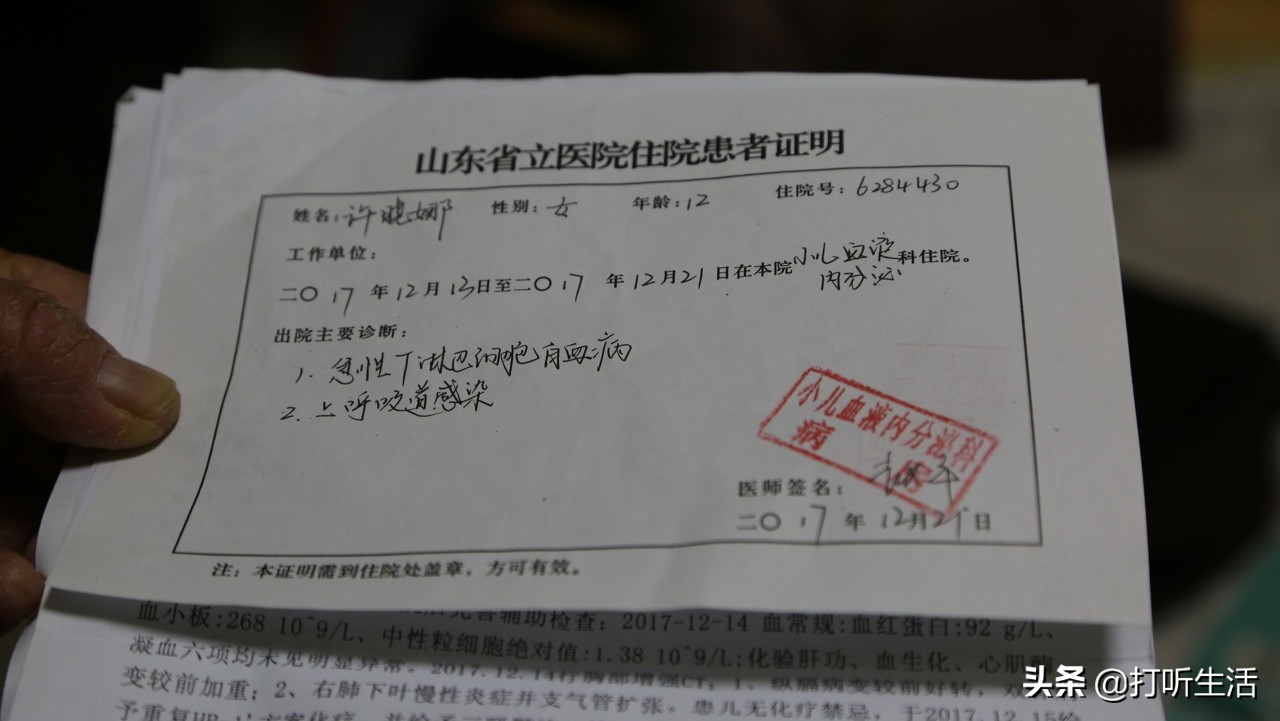 山东省立医院住院患者证明
姓名:许晓娜 性别:女 年龄:12 住院号:6284430
工作单位:
二〇17年12月13日至二〇17年12月21日在本院小儿血液内分泌科住院。
出院主要诊断:
1. 急性T淋巴细胞白血病
2. 上呼吸道感染
小儿血液内分泌科
病
医师签名:
二〇17年12月21日
注:本证明需到住院处盖章,方可有效。
辅助检查:2017-12-14 血常规:血红蛋白:92 g/L、
血小板:268 10^9/L、中性粒细胞绝对值:1.38 10^9/L;化验肝功、血生化、心肌
凝血六项均未见明显异常。2017.12.14行胸部增强CT:1、纵膈病变较前好转,双
变较前加重;2、右肺下叶慢性炎症并支气管扩张。患儿无化疗禁忌,于2017.12.15
头条 @打听生活